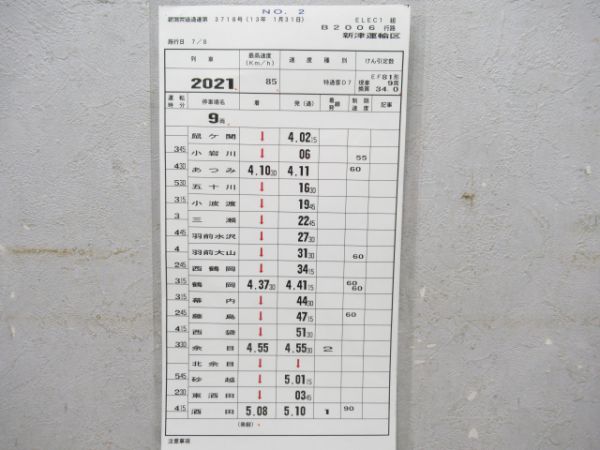 NO. 2
3718号 (13年 1月31日)
ELEC1 組
B2006 行路
新津運輸区
施行日 7/8
列車 最高速度 (Km/h) 速度種別 けん引定数
2021 85 特通客D7 EF81形 現車 9両 換算 34.0
運転時分 停車場名 着 発(通) 着発線 制限速度 記事
9両
鼠ケ関 ↓ 4.02 15
345
小岩川 ↓ 06 55
430
あつみ 4.10 30 4.11 60
530
五十川 ↓ 16 30
315
小波渡 ↓ 19 45
3
三瀬 ↓ 22 45
445
羽前水沢 ↓ 27 30
4
羽前大山 ↓ 31 30 60
245
西鶴岡 ↓ 34 15
315
鶴岡 4.37 30 4.41 15 60 60
315
幕内 ↓ 44 30
245
藤島 ↓ 47 15 60
415
西袋 ↓ 51 30
330
余目 4.55 4.55 30 2
北余目 ↓ ↓
545
砂越 ↓ 5.01 15
230
東酒田 ↓ 03 45
415
酒田 5.08 5.10 1 90
注意事項